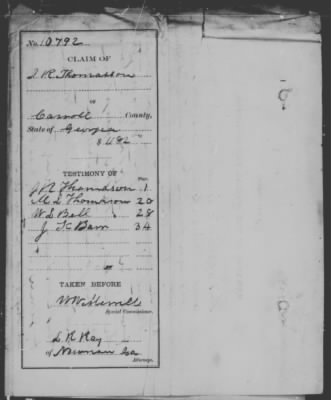 No. 10792
CLAIM OF
J. R. Thomasson
OF
Carroll County,
State of Georgia
$ 682
TESTIMONY OF
Page.
J R Thomasson 1
M L Thompson 20
W S Bell 28
J K Barr 34
TAKEN BEFORE
W W Merrell
Special Commissioner.
L R Ray
of Newnan Ga
Attorney.